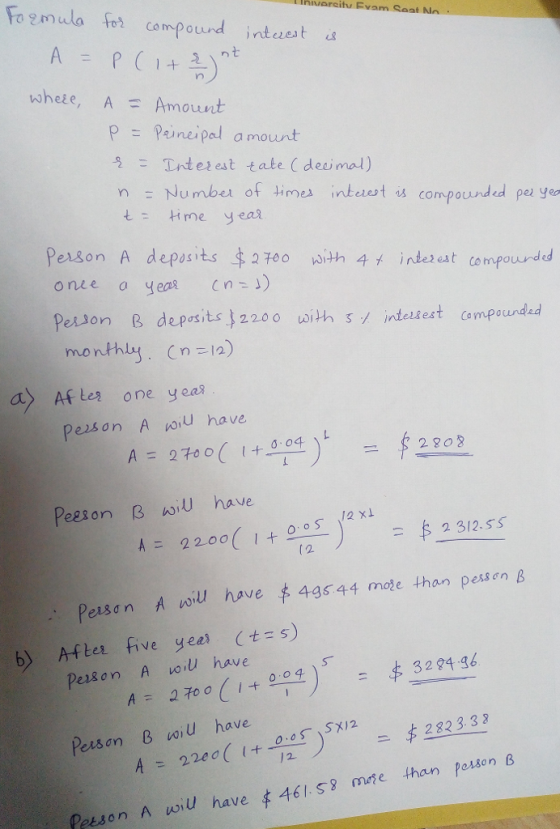 University Exam Seat No.
Formula for compound interest is
A = P ( 1 + r/n )^nt
where, A = Amount
P = Principal amount
r = Interest rate ( decimal )
n = Number of times interest is compounded per yea
t = time year
Person A deposits $ 2700 with 4 % interest compounded
once a year (n = 1)
Person B deposits $ 2200 with 5 % interest compounded
monthly. (n = 12)
a) After one year.
person A will have
A = 2700 ( 1 + 0.04/1 )^1 = $ 2808
Person B will have
A = 2200 ( 1 + 0.05/12 )^12×1 = $ 2312.55
∴ Person A will have $ 495.44 more than person B
b) After five year (t = 5)
Person A will have
A = 2700 ( 1 + 0.04/1 )^5 = $ 3284.96
Person B will have
A = 2200 ( 1 + 0.05/12 )^5×12 = $ 2823.38
∴ Person A will have $ 461.58 more than person B